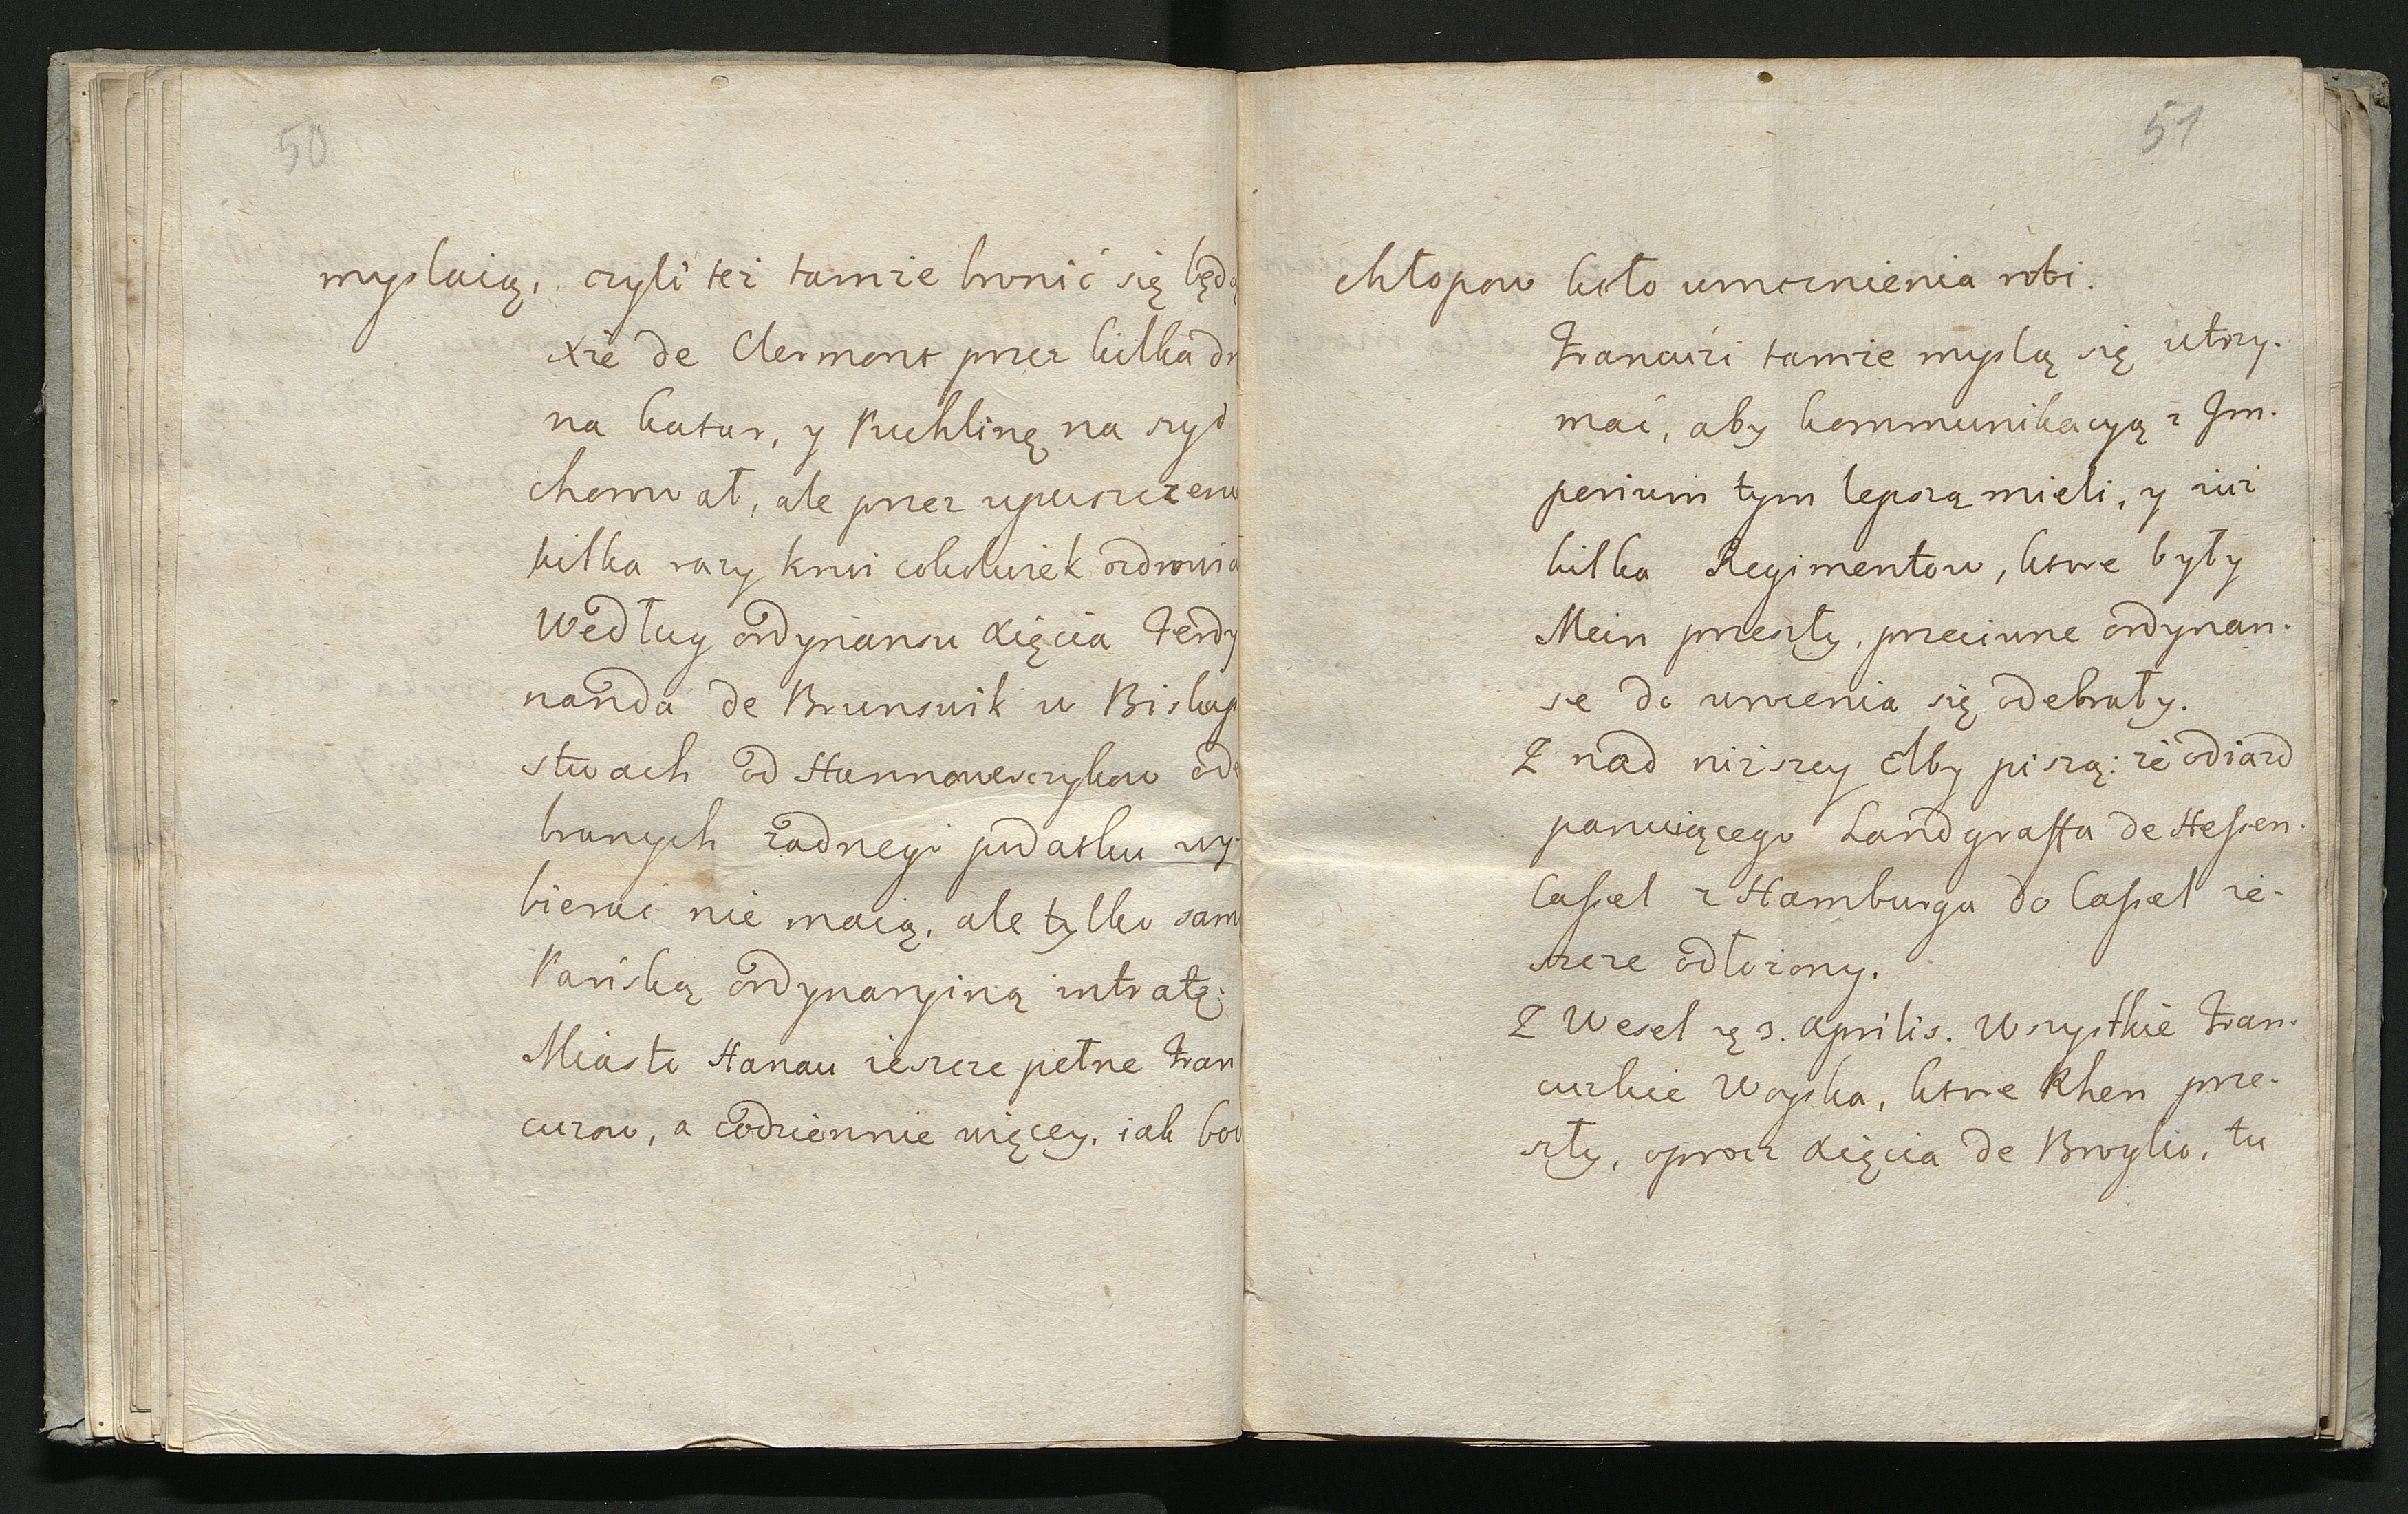 50
myslaią, czyli też tamże bronić się będą
Xże de Clermont przez kilka dn
na katar, y Puchlinę na szyi
chorował, ale przez upuszczenie
kilka razy krwi cokolwiek ozdrowia
Według ordynansu Xięcia Ferdy
nanda de Brunswik w Biskup
stwach od Hannowerczykow ode
branych żadnego podatku wy-
bierać nie maią, ale tylko sam
Pańską ordynaryiną intratę:
Miasto Hanau ieszcze pełne Fran
cuzow, a codziennie więcey, iak
51
chłopow koło umocnienia robi.
Francuzi tamże myslą się utrzy-
mać, aby kommunikacyą z Im-
perium tym lepszą mieli, y iuż
kilka Regimentow, ktore były
Mein przeszły, przeciwne ordynan-
se do wrocenia się odebrały.
Z nad niższey Elby piszą: że odiazd
panuiącego Landgraffa de Hessen-
Cassel z Hamburga do Cassel ie-
szcze odłożony.
Z Wesel 3. Aprilis. Wszystkie Fran-
cuzkie Woyska, ktore Rhen prze-
szły, oprocz Xięcia de Broglio, tu